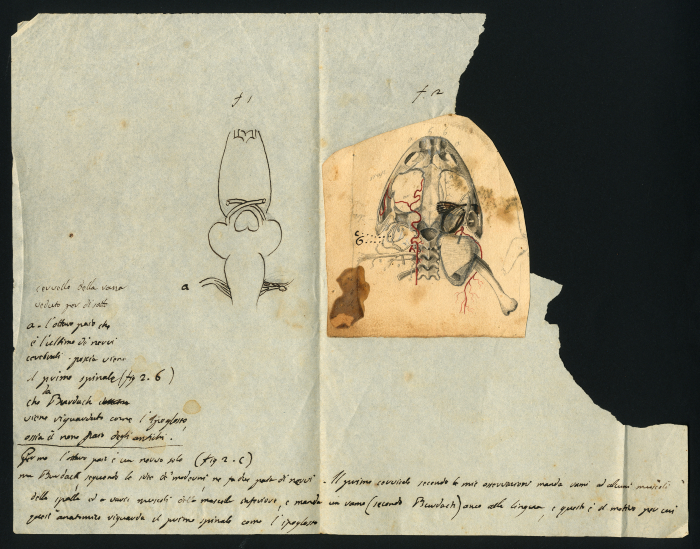 f 1
f 2
a
c
6
cervello della rana
veduto per di sotto
a - l'ottavo pajo che
è l'ultimo di nervi
cerebrali - poscia viene
il primo spinale (fig 2. 6)
che da Burdach
viene riguardato come l'ipoglosso,
ossia il nono pajo degli antichi.
Per me l'ottavo pajo è un nervo solo (fig 2. c)
ma Burdach seguendo le idee di moderni ne fa due paja di nervi - Il primo cervicale secondo le mie osservazioni manda rami ad alcuni muscoli
della spalla ed a varii muscoli della mascella inferiore, e manda un ramo (secondo Burdach) anco alla lingua, e questo è il motivo per cui
quest'anatomico riguarda il primo spinale come l'ipoglosso